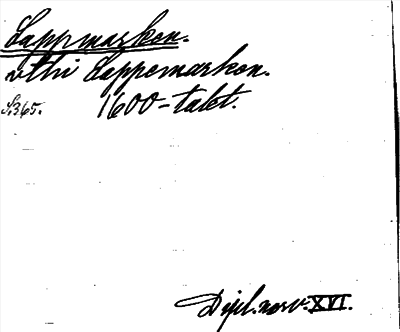 Lappmarkon.
vthi Lappemarkon.
S. 365. 1600-talet.
Dipl. norv. XVI.